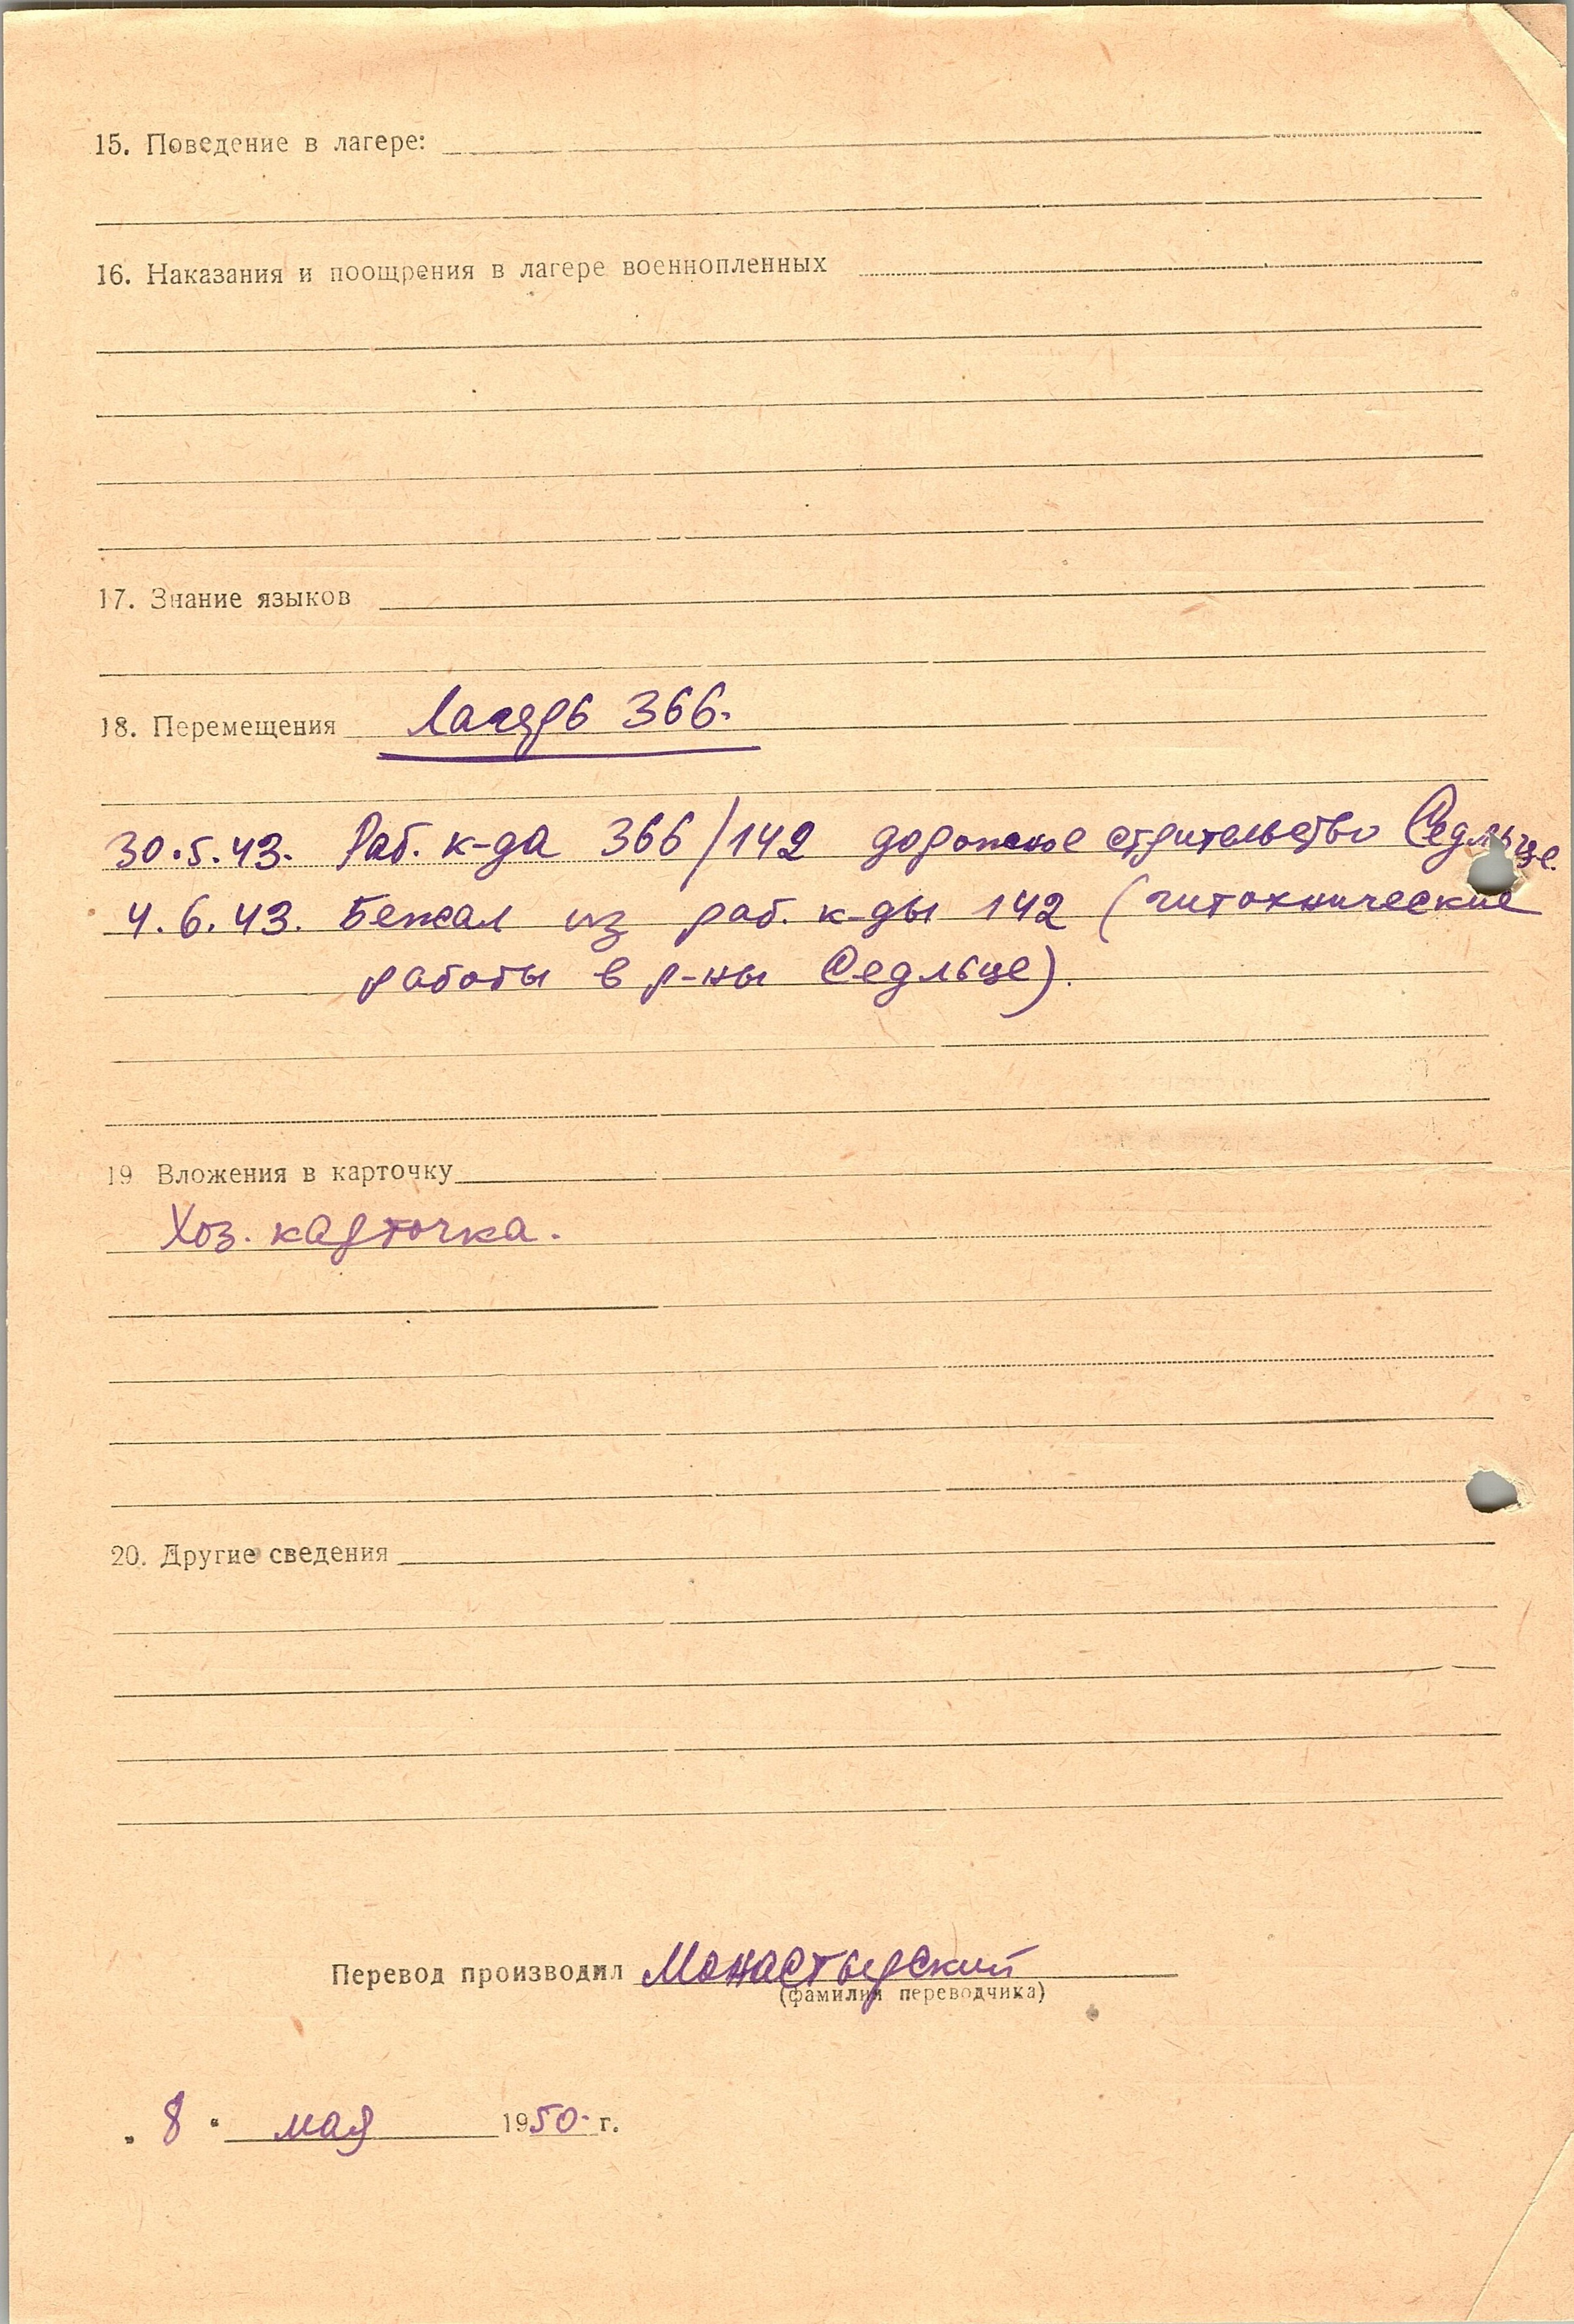 15. Поведение в лагере:
16. Наказания и поощрения в лагере военнопленных
17. Знание языков
18. Перемещения Лагерь 366.
30.5.43. Раб. к-да 366/142 дорожное стрительство Седльце.
4.6.43. Бежал из раб. к-ды 142 (
работы в р-ны Седльце).
19 Вложения в карточку
Хоз. карточка.
20. Другие сведения
Перевод производил Монастырский
(фамилия переводчика)
„ 8 " мая 1950 г.